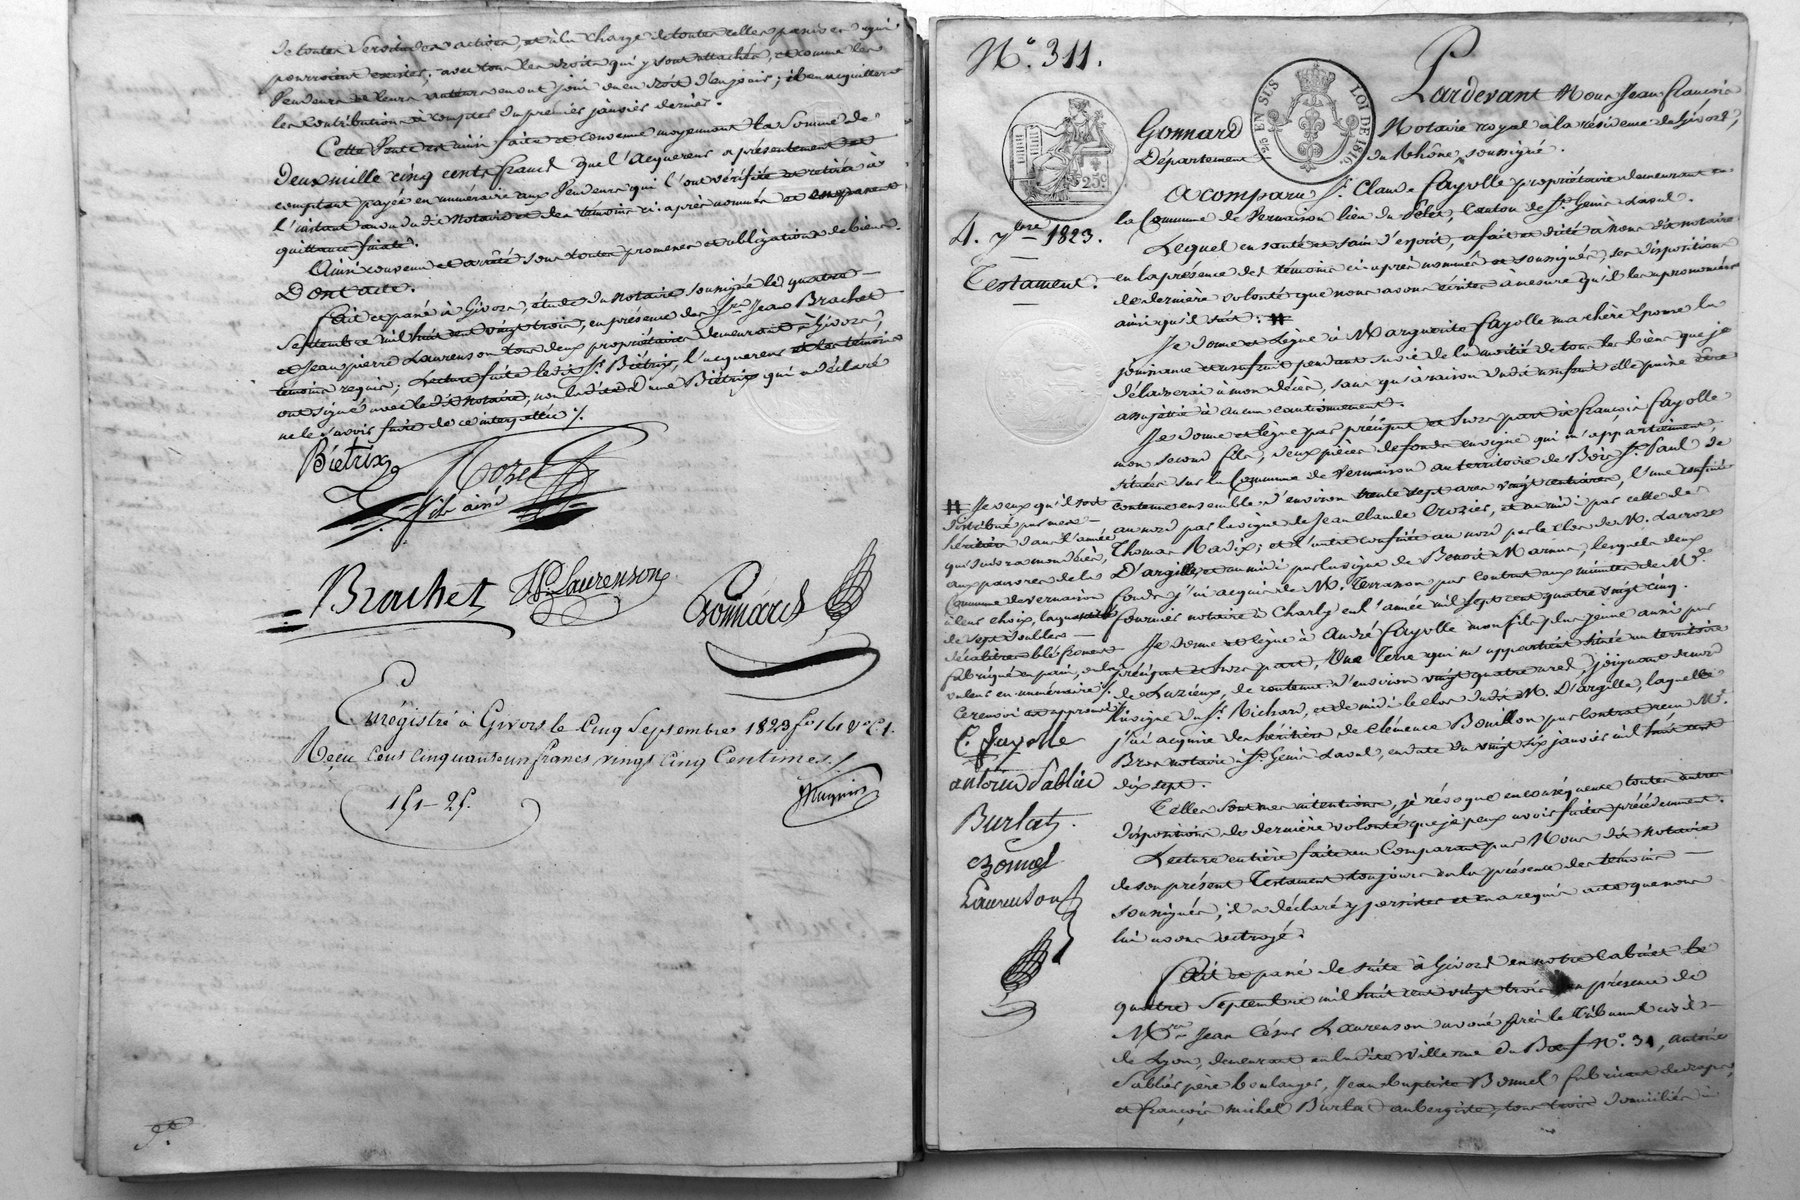 de toutes servitudes actives, et à la charge de toutes celles passives qui
pourroient exister, avec tous les droits qui y sont attachés, et comme les
vendeurs et leurs auteurs en ont joui ou eu droit d'en jouir; il en acquittera
les contributions à compter du premier janvier dernier.
Cette vente est ainsi faite et convenue moyennant la somme de
Deux mille cinq cents francs que l'acquéreur a présentement et
comptant payée en numéraire aux vendeurs qui l'ont vérifiée et retirée à
l'instant au vu dudit notaire et des témoins ci-après nommés et en passent
quittance finale.
Ainsi convenu et arrêté sous toutes promesses et obligations de biens.
Dont acte.
Fait et passé à Givors, étude du notaire soussigné le quatre
Septembre mil huit cent vingt trois, en présence des Srs Jean Brachet
et Jean pierre Laurenson tous deux propriétaires demeurant à Givors,
témoins requis; Lecture faite ledit Sr. Biétrix, l'acquéreur et les témoins
ont signé avec ledit notaire, non ladite dame Biétrix qui a déclaré
ne le savoir faire de ce interpellée ./.
Biétrix
Rozet
fils ainé
Brachet JP Laurenson Gonnard
Enrégistré à Givors le Cinq Septembre 1823 fo 161 Vo C 1.
Reçu Cent cinquante un francs vingt cinq Centimes ./.
151-25.
N.° 311.
Pardevant Nous Jean François
Gonnard Notaire royal à la résidence de Givors,
Département du Rhône, soussigné.
1.25 EN SUS LOI DE 1816.
25c
A comparu Sr. Claude Fayolle propriétaire demeurant en
la Commune de Vernaison lieu du Pelet, Canton de St. Genis Laval.
4. 7bre 1823.
Testament.
Lequel en santé et sain d'esprit, a fait et dicté à nous dit notaire
en la présence des témoins ci-après nommés et soussignés, ses dispositions
de dernière volonté que nous avons écrites à mesure qu'il les a prononcées
ainsi qu'il suit: #
Je donne et lègue à Marguerite Fayolle ma chère épouse la
jouissance et usufruit pendant sa vie de la moitié de tous les biens que je
délaisserai à mon décès, sans qu'à raison dudit usufruit elle puisse être
assujettie à aucun cautionnement.
Je donne et lègue par préciput et hors part à françois Fayolle
mon second fils, deux pièces de fonds en vigne qui m'appartiennent,
situées sur la Commune de Vernaison au territoire de Bois St. Paul de
contenue ensemble d'environ trente sept ares vingt centiares, l'une confinée
au nord par la vigne de Jean Claude Crozier, et au midi par celle de
Thomas Radix; et l'autre confinée au nord par le clos de M. Lacroze
D'argille, et au midi par la vigne de Benoit Marmu, lesquels deux
fonds j'ai acquis de M. Terrasson par contrat aux minutes de Me.
fournier notaire à Charly en l'année mil sept cent quatre vingt cinq.
Je donne et lègue à André Fayolle mon fils plus jeune aussi par
préciput et hors part, Une Terre qui m'appartient située au territoire
de Luzieux, de contenue d'environ vingt quatre ares, joignant de nord
la vigne du Sr. Richard, et de midi le clos dudit M. D'argille, laquelle
j'ai acquise des héritiers de Clémence Bouillon par contrat reçu Me.
Bros notaire à St. Genis Laval, en date du vingt six janvier mil huit cent
dix sept.
Telles sont mes intentions, je révoque en conséquence toutes autres
dispositions de dernière volonté que je peux avoir faites précédemment.
Lecture entière faite au Comparant par Nous dit notaire
de son présent Testament toujours en la présence des témoins
soussignés, il a déclaré y persister et en a requis acte que nous
lui avons octroyé.
Fait et passé de suite à Givors en notre Cabinet le
quatre Septembre mil huit cent vingt trois en présence de
Jean César Laurenson avoué près le Tribunal civil
de Lyon, demeurant en ladite ville rue du Bœuf N°. 31, antoine
Sablier père boulanger, Jean baptiste Bonnel fabricant de drap,
et françois michel Burlat aubergiste, tous trois domiciliés à
# Je veux qu'il soit
distribué par mes
héritiers dans l'année
qui suivra mon décès,
aux pauvres de la
Commune de Vernaison
à leur choix, la quantité
de sept doubles
décalitres blé froment
fabriqué en pain, ou la
valeur en numéraire ./.
Ce renvoi est approuvé
C. Fayolle
antoine Sablier
Burlat.
Bonnel
Laurenson